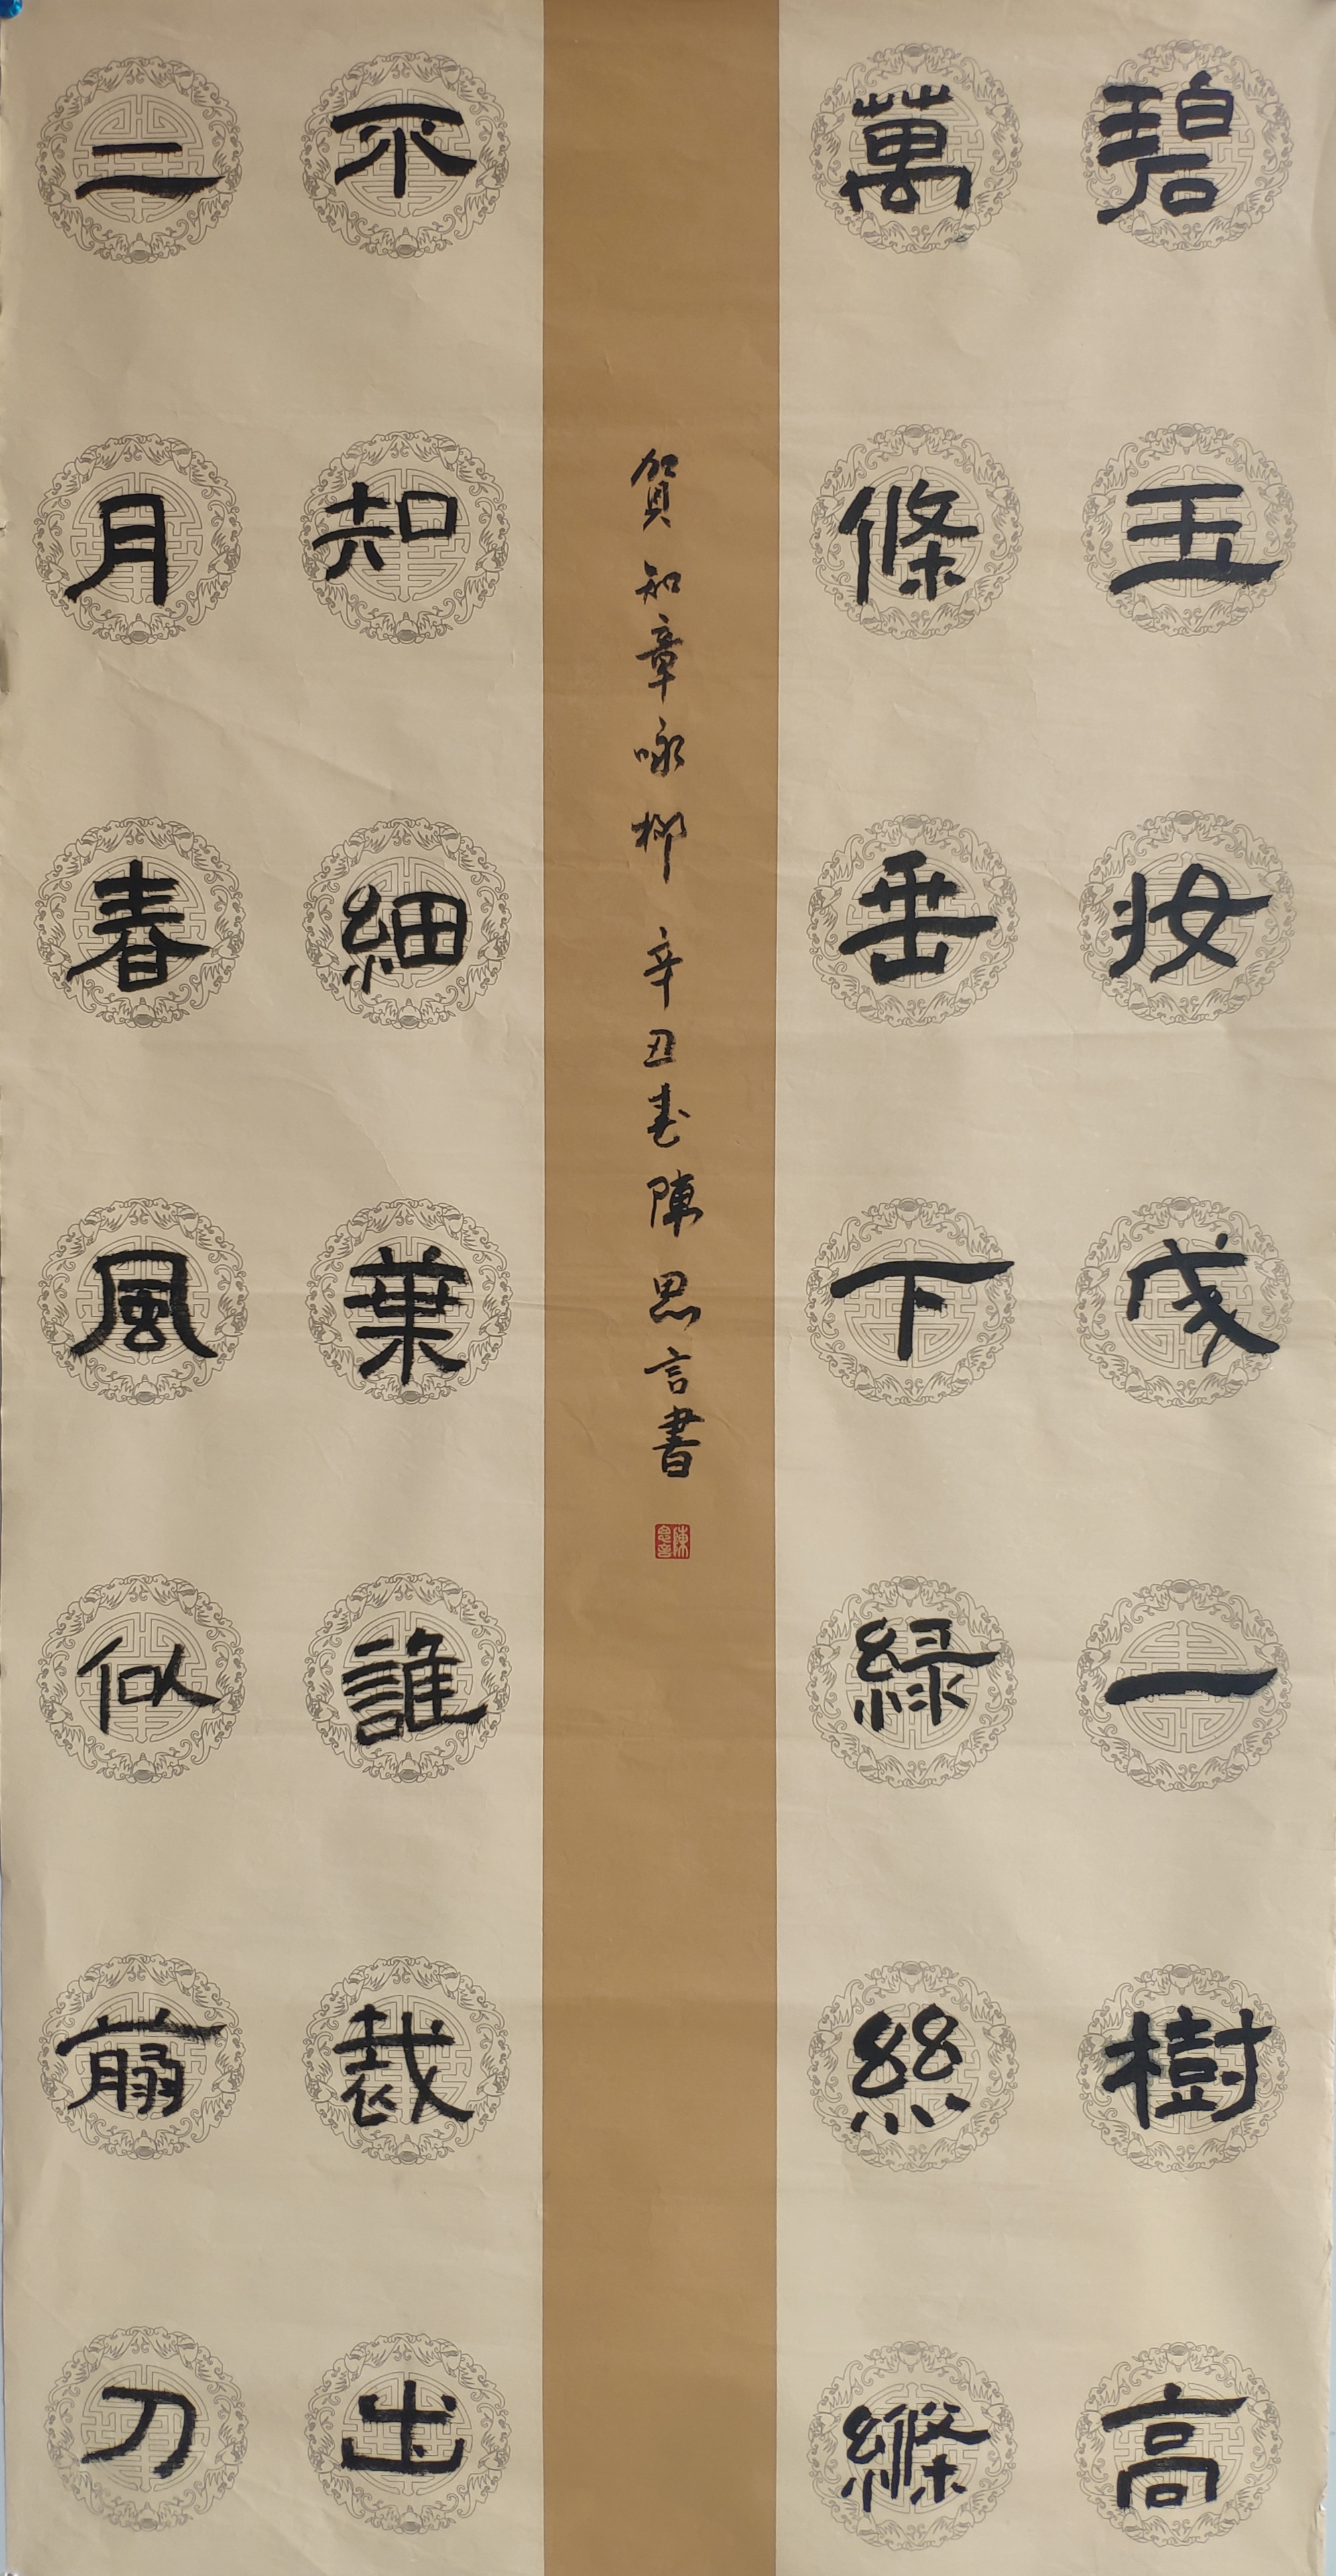 碧玉妝成一樹高
萬條垂下綠絲縧
不知細葉誰裁出
二月春風似剪刀
賀知章咏柳 辛丑春陳思言書
陳思言